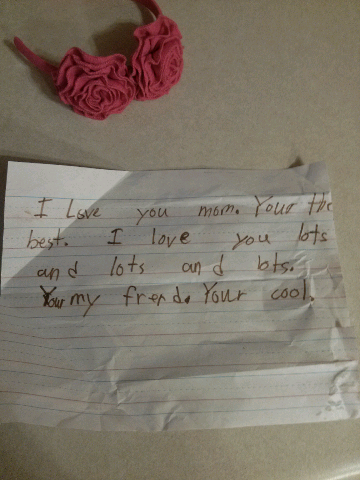 I Love you mom. Your the
best. I love you lots
and lots and lots.
Your my frend. Your cool.